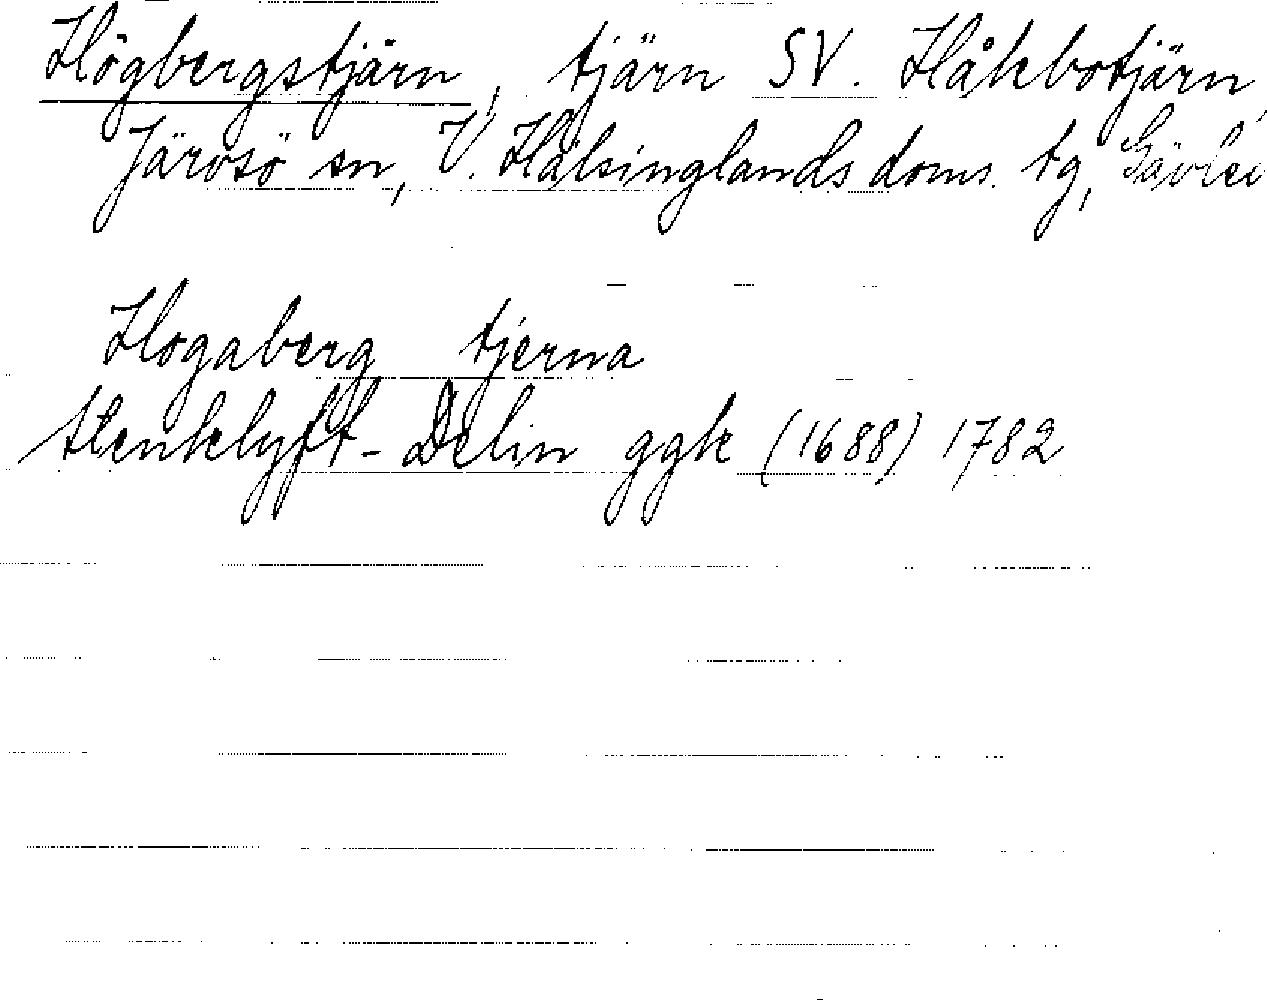 Högbergstjärn, tjärn SV. Håkbotjärn,
Järvsö sn, V. Hälsinglands doms. tg, Gävle
Hogaberg tjerna
Stenklyft-Delin ggk (1688) 1782